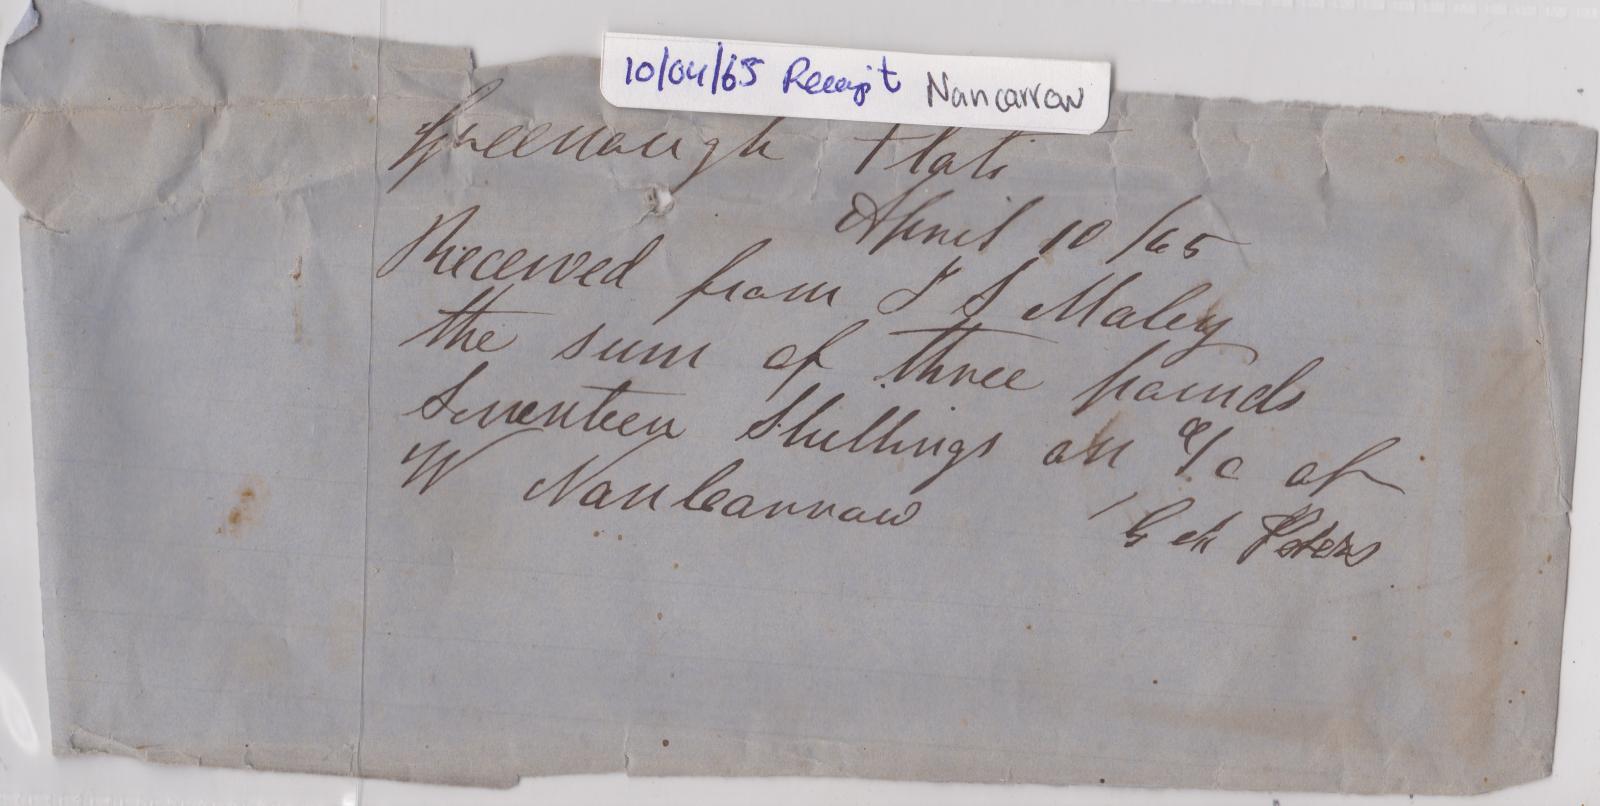 10/04/65 Receipt Nancarrow
Greenough Flats
April 10/65
Received from J S Maley
the sum of three pounds
Seventeen Shillings on a/c of
W NanCarrow
Peters